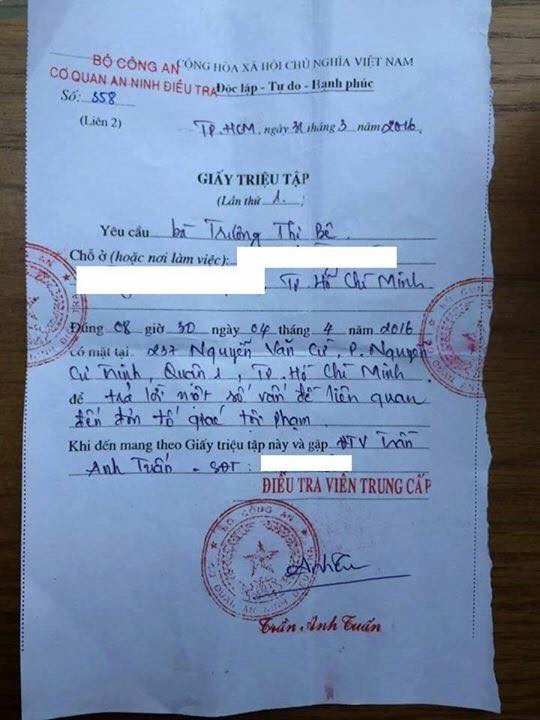 BỘ CÔNG AN CỘNG HÒA XÃ HỘI CHỦ NGHĨA VIỆT NAM
CƠ QUAN AN NINH ĐIỀU TRA Độc lập - Tự do - Hạnh phúc
Số: 558
(Liên 2) TP. HCM, ngày 31 tháng 3 năm 2016
GIẤY TRIỆU TẬP
(Lần thứ 1.)
Yêu cầu bà Trương Thị Bê
Chỗ ở (hoặc nơi làm việc):
TP Hồ Chí Minh
Đúng 08 giờ 30 ngày 04 tháng 4 năm 2016
có mặt tại 237 Nguyễn Văn Cừ, P. Nguyễn
Cư Trinh, Quận 1, TP. Hồ Chí Minh
để trả lời một số vấn đề liên quan
đến đơn tố giác tội phạm.
Khi đến mang theo Giấy triệu tập này và gặp ĐTV Trần
Anh Tuấn - SĐT:
ĐIỀU TRA VIÊN TRUNG CẤP
BỘ CÔNG AN
CƠ QUAN AN NINH ĐIỀU TRA
Trần Anh Tuấn